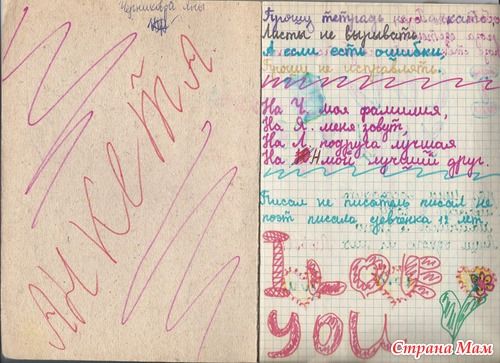 Чурникова Яны
АНКЕТА
Прошу тетрадь не
Листы не вырывать
А если есть ошибки,
Прошу не исправлять.
На Ч. моя фамилия,
На Я. меня зовут,
На Л. подруга лучшая
На Н мой лучший друг.
Писал не писатель писал не
поэт писала девчёнка 12 лет.
I LOVE
YOU
Страна Мам